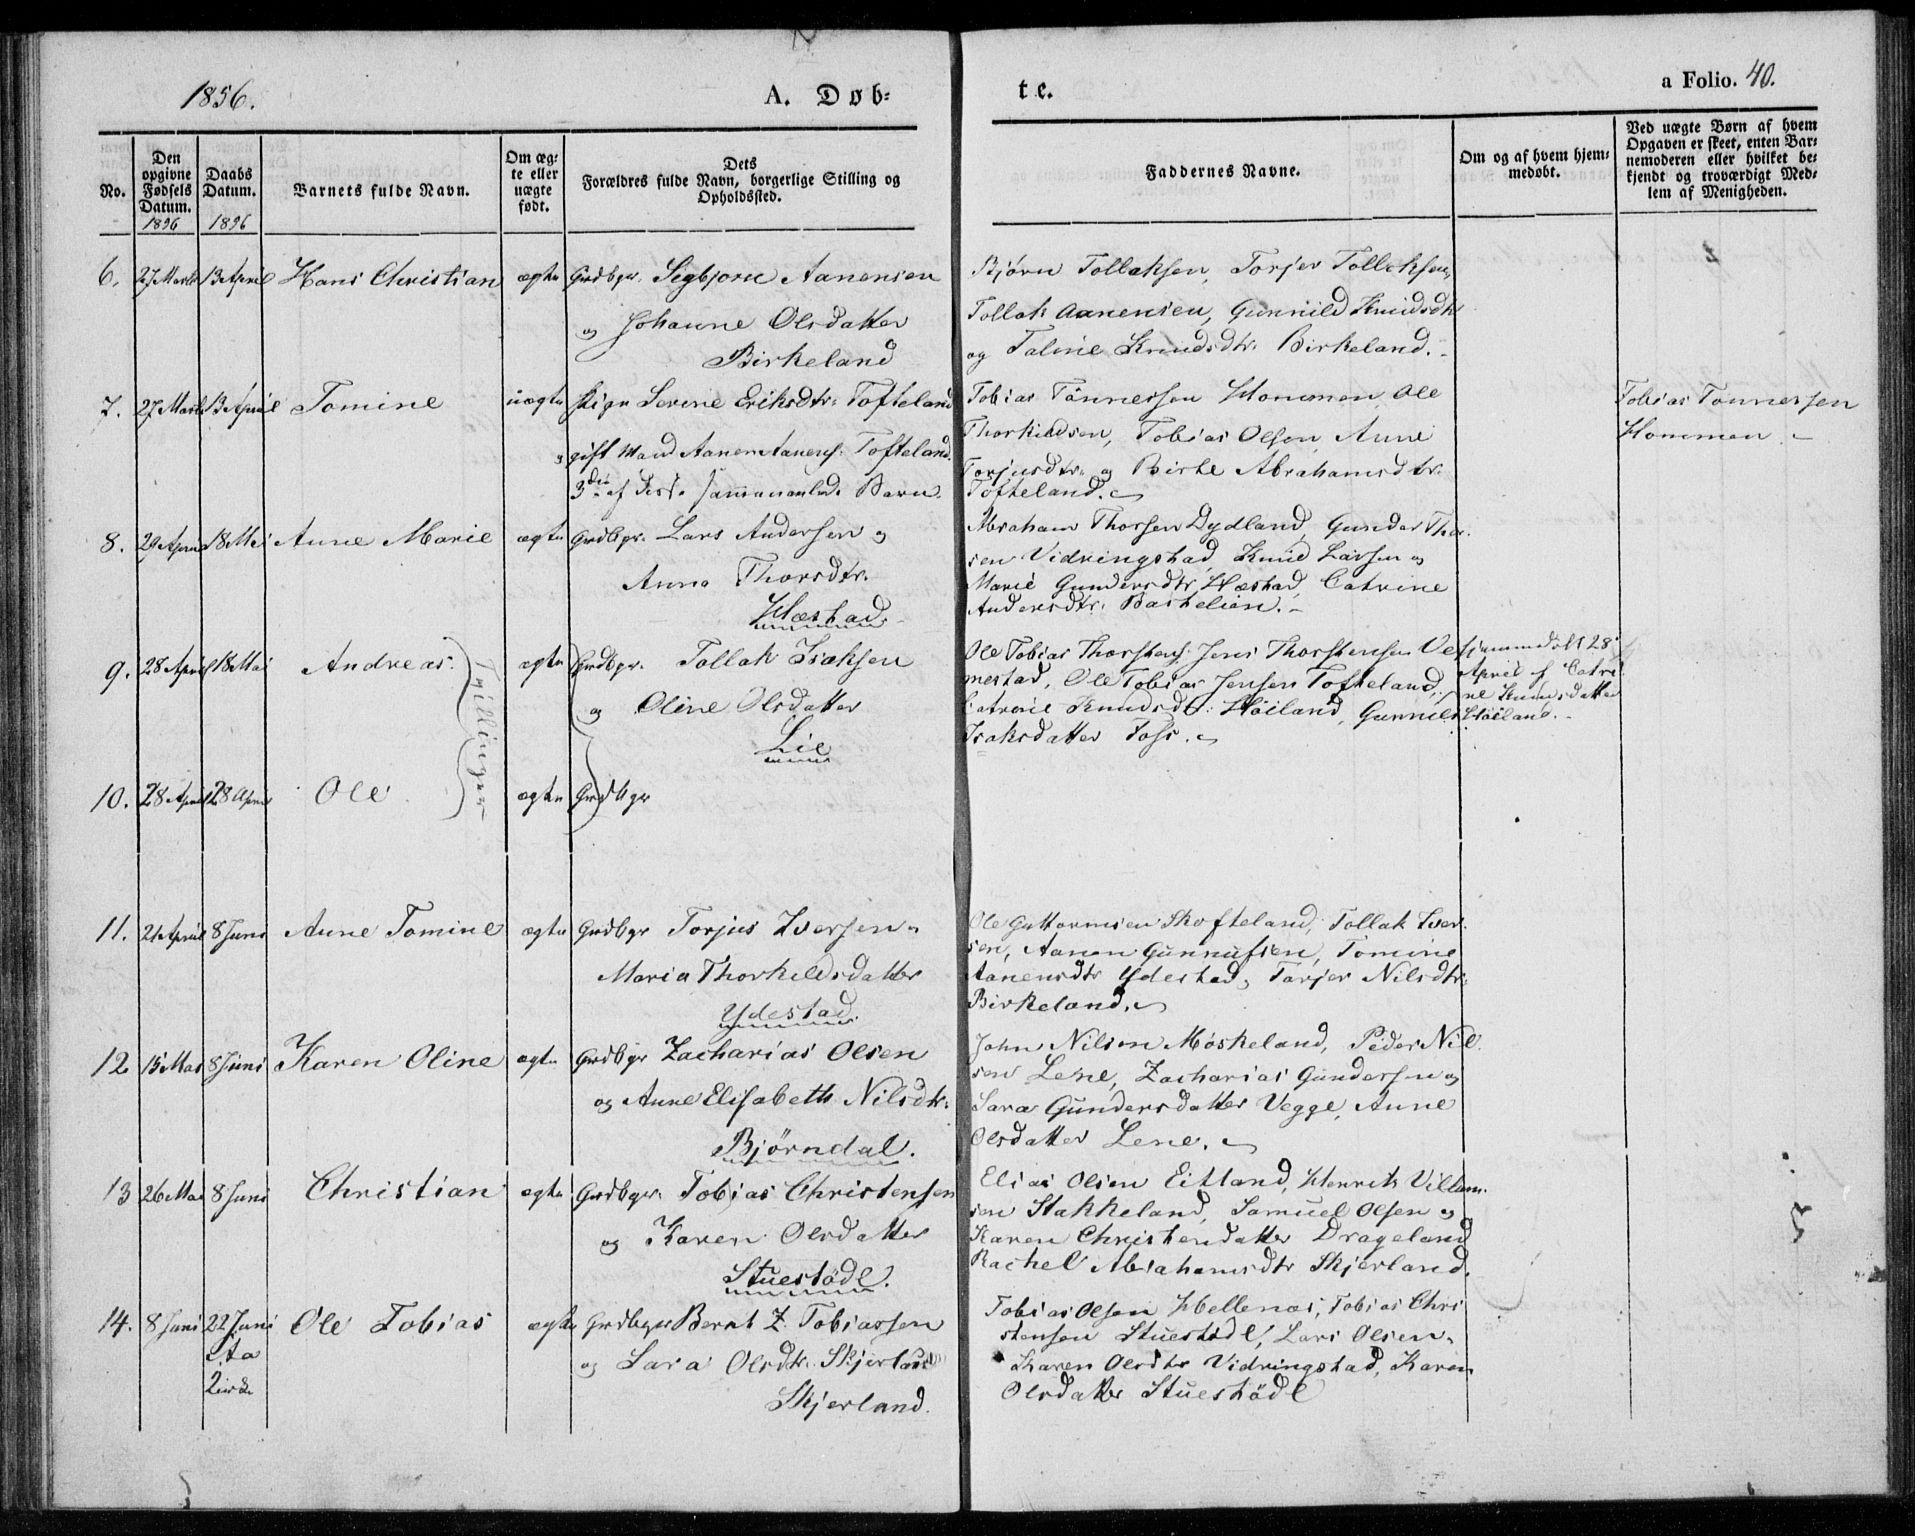 1856.
A. Døb-
te.
a Folio. 40.
No.
Den opgivne Fødsels Datum.
1856
Daabs Datum.
1856
Barnets fulde Navn.
Om ægte eller uægte født.
Dets Forældres fulde Navn, borgerlige Stilling og Opholdssted.
Faddernes Navne.
Om og af hvem hjemmedøbt.
Ved uægte Børn af hvem Opgaven er skeet, enten Barnemoderen eller hvilket bekjendt og troværdigt Medlem af Menigheden.
6. 27 Marts 13 April Hans Christian ægte Grdbgr. Sigbjørn Aanensen
og Johanne Olsdatter
Birkeland
Bjørn Tollaksen, Torjer Tollaksen,
Tollak Aanensen, Gunnild Knudsdtr
og Taline Knudsdtr. Birkeland.
7. 27 Marts 13 April Tomine uægte Pige Serine Eriksdtr. Tofteland
gift Mand Aanen Aanens. Tofteland.
3die af Sammenavlede Barn.
Tobias Tönnessen Hommen, Ole
Thorkildsen, Tobias Olsen, Anne
Torjusdtr. og Birte Abrahamsdtr.
Tofteland.
Tobias Tönnessen
Hommen.
8. 29 April 18 Mai Anne Marie ægte Grdbgr. Lars Andersen og
Anna Thorsdtr.
Hæstad.
Abraham Thorsen Dydland, Gunder Thor-
sen Vidringstad, Knud Larsen og
Marie Gundersdtr Hæstad, Catrine
Andersdtr.
9. 28 April 18 Mai Andreas. ægte Grdbgr. Tollak Isaksen
og Oline Olsdatter
Lie
Tvillinger
Ole Tobias Thorstens. Jens Thorstensen Ve-
mestad, Ole Tobias Jensen Tofteland,
Catrine Knudsdtr. Höiland, Gunnild
Isaksdatter Foss.
hjemmedöbt 28
April af Catri-
ne Knudsdatter
Höiland.
10. 28 April 28 April Ole ægte Grdbgr
11. 21 April 8 Juni Anne Tomine ægte Grdbgr Torjus Iversen
Maria Thorkildsdatter
Ydestad.
Ole Guttormsen Skofteland, Tollak Iver-
sen, Aanen Gunnufsen, Tomine
Aanensdtr Ydestad, Torjer Nilsdtr.
Birkeland.
12 15 Mai 8 Juni Karen Oline ægte Grdbgr Zacharias Olsen
og Anne Elisabeth Nilsdtr.
Bjørndal.
John Nilsen Möskeland, Peder Nil-
sen Lene, Zacharias Gundersen og
Sara Gundersdatter Vegge, Anne
Olsdatter Lene.
13 26 Mai 8 Juni Christian ægte Grdbgr. Tobias Christensen
og Karen Olsdatter
Stuestödl.
Elias Olsen Eitland, Henrik Villum-
sen Stakkeland, Samuel Olsen og
Karen Christendatter Drageland
Rachel Abrahamsdtr Skjerland.
14. 8 Juni 22 Juni Ole Tobias ægte Grdbgr Bernt Z. Tobiassen
og Sara Olsdtr. Skjerland
Skjerland.
Tobias Olsen Hellenes, Tobias Chri-
stensen Stuestödl, Lars Olsen,
Karen Olsdtr Vidringstad, Karen
Olsdatter Stuestödl